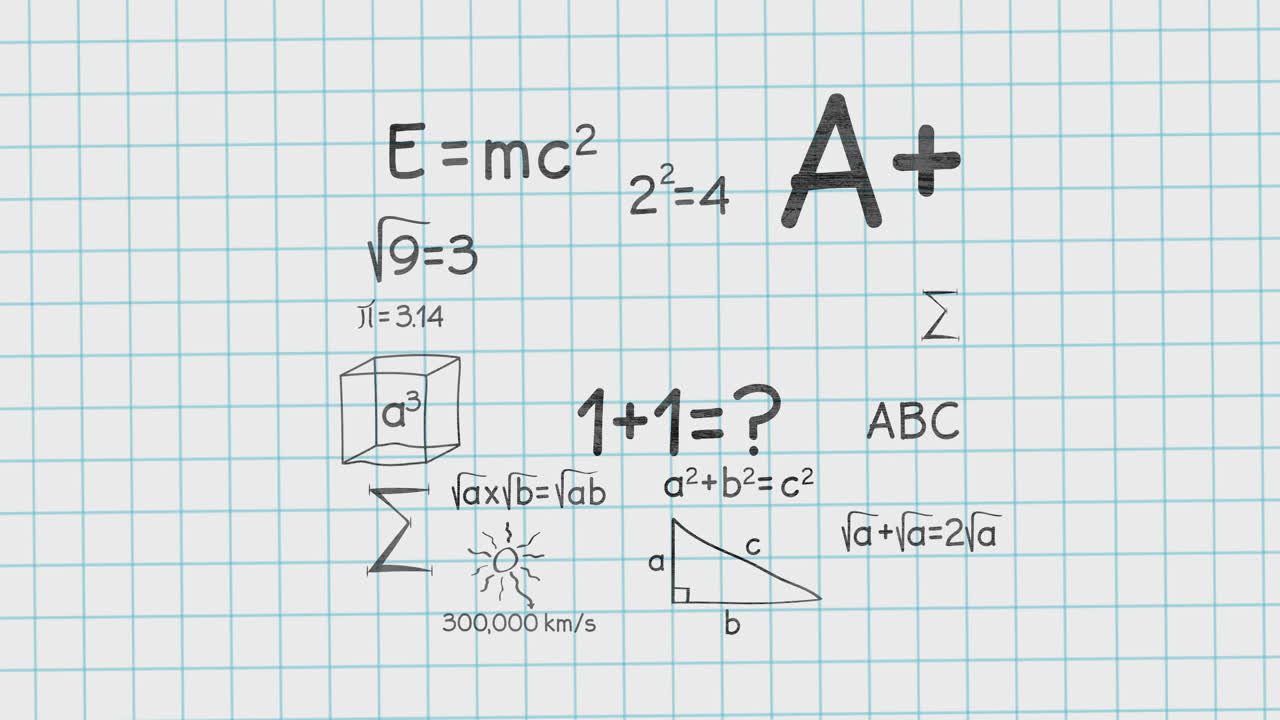 E=mc²
2²=4
A+
√9=3
π=3.14
Σ
a³
1+1=?
ABC
√a×√b=√ab
a²+b²=c²
Σ
√a+√a=2√a
a
c
b
300,000 km/s